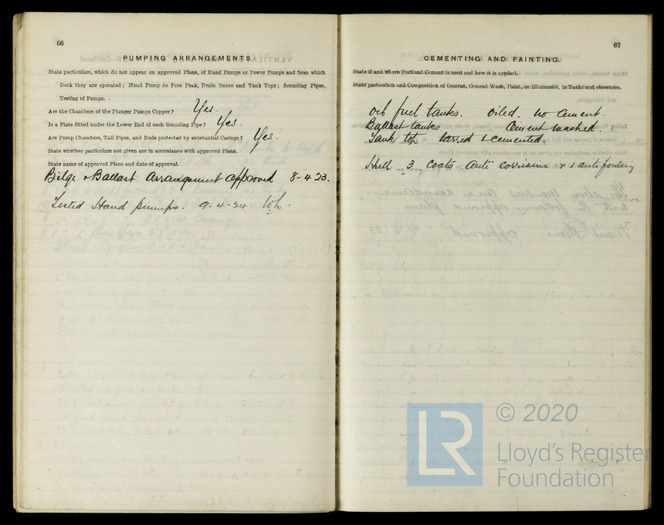 66
PUMPING ARRANGEMENTS.
State particulars, which do not appear on approved Plans, of Hand Pumps or Power Pumps and from which
Deck they are operated; Hand Pump to Fore Peak, Drain Boxes and Tank Tops; Sounding Pipes,
Testing of Pumps.
Are the Chambers of the Plunger Pumps Copper? Yes.
Is a Plate fitted under the Lower End of each Sounding Pipe? Yes.
Are Pump Chambers, Tail Pipes, and Rods protected by substantial Casings? Yes.
State whether particulars not given are in accordance with approved Plans.
State name of approved Plans and date of approval.
Bilge & Ballast Arrangement approved 8-4-23.
Tested Hand pumps. 9-4-24
67
CEMENTING AND PAINTING.
State if and where Portland Cement is used and how it is applied.
State particulars and Composition of Cement, Cement Wash, Paint, or Bitumastic, in Tanks and elsewhere.
oil fuel tanks. oiled. no cement.
Ballast tanks Cement washed.
Tank tops tarred & cemented.
Shell 3 coats anti corrosive & 1 anti fouling
LR
© 2020
Lloyd's Register
Foundation